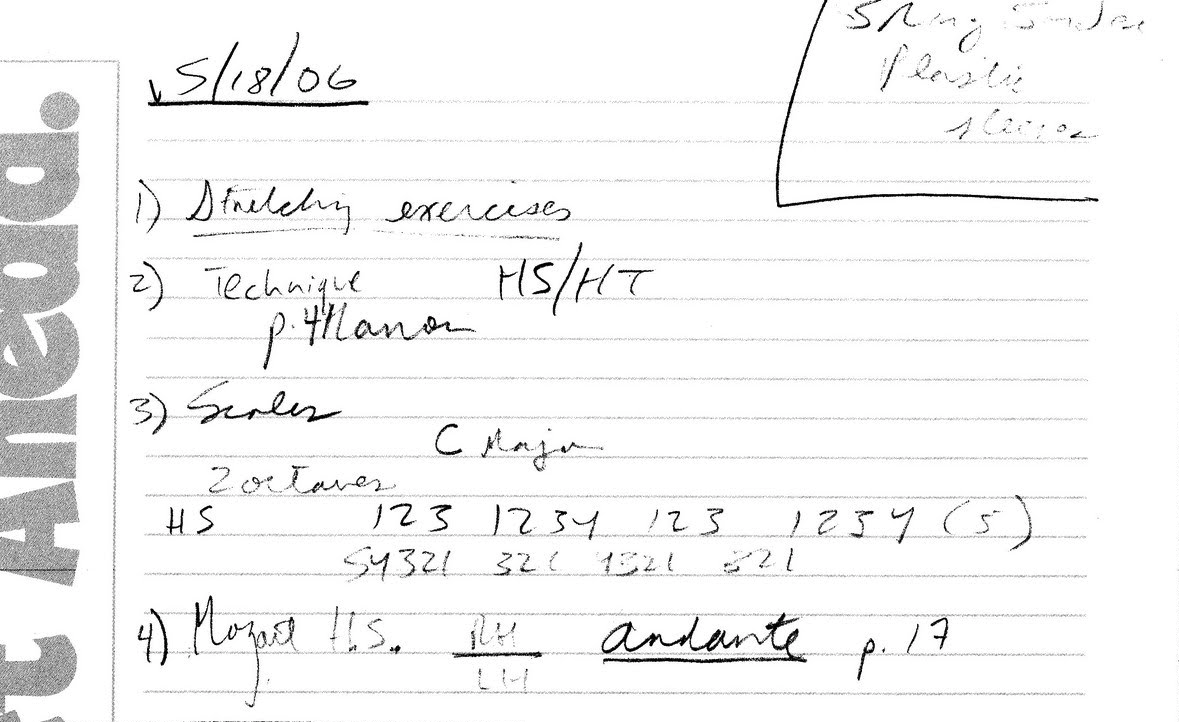 5/18/06
3 Ring Binder
Plastic
1) Stretching exercises
2) Technique HS/HT
p. 4 Hanon
3) Scales
C Major
2 octaves
HS 123 1234 123 1234 (5)
54321 321 4321 321
4) Mozart H.S. RH andante p. 17
LH
t Ahead.